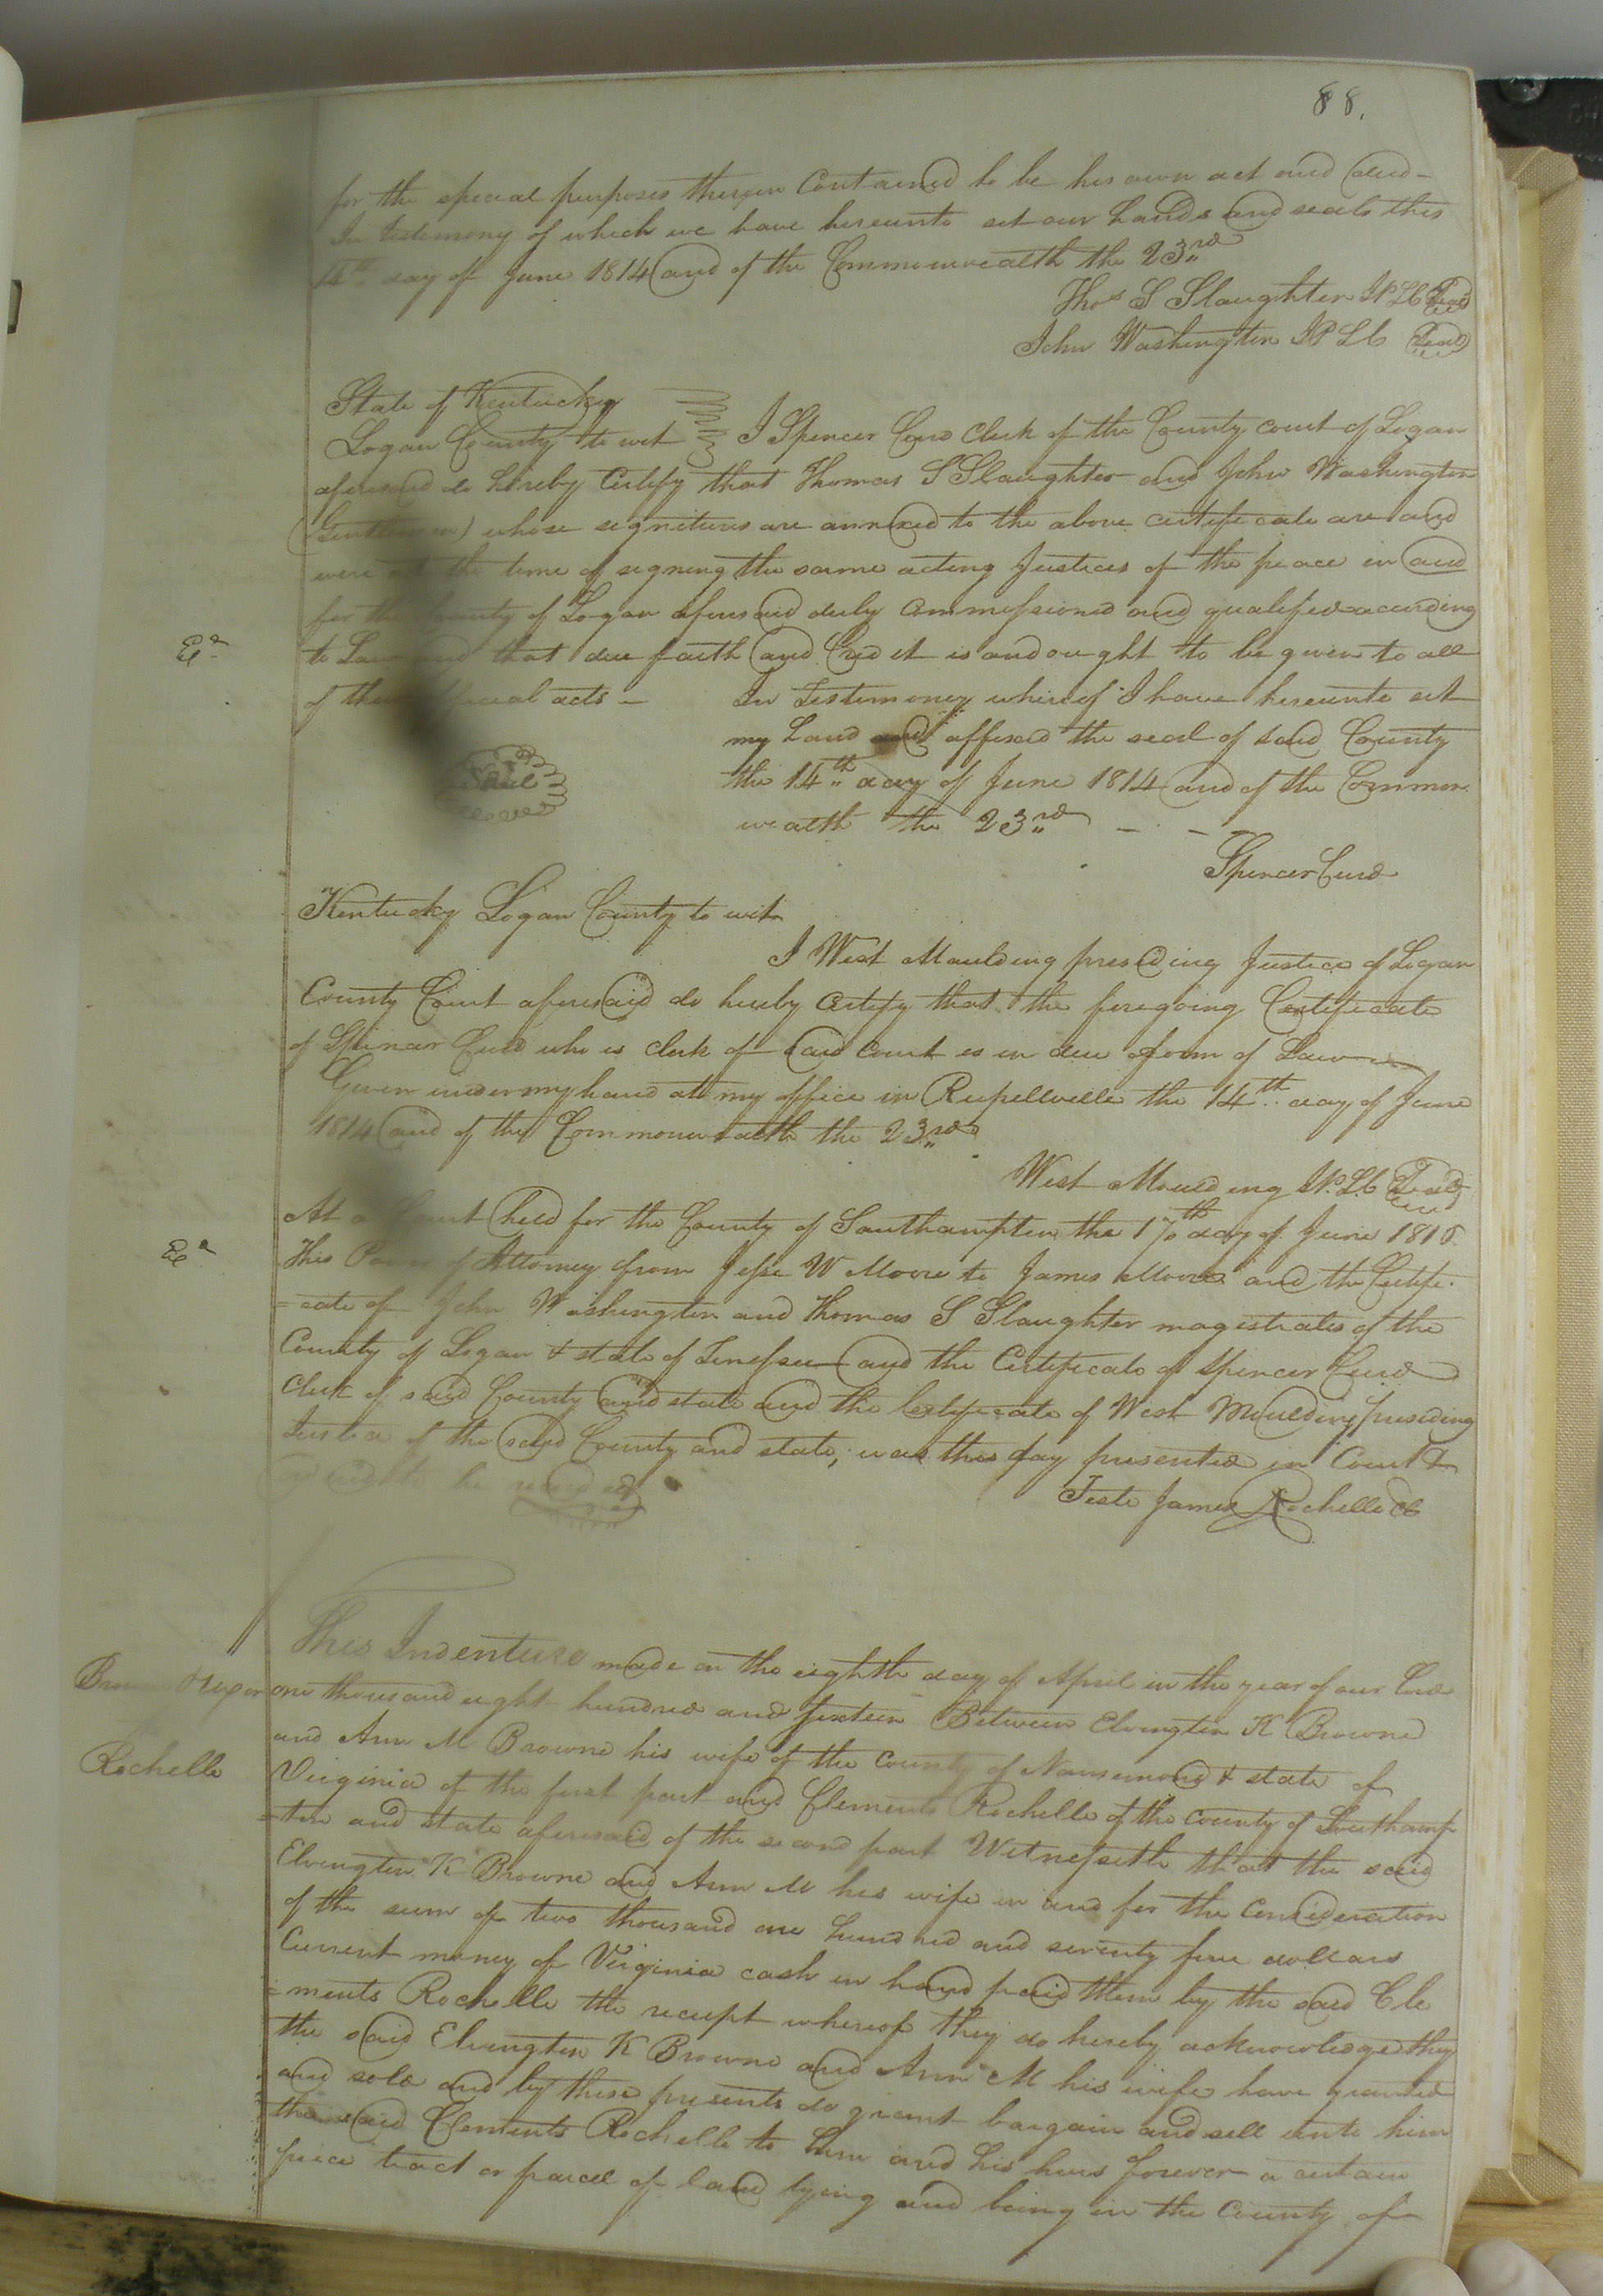 88.
for the special purposes therein Contained to be his own act and deed -
In testimony of which we have hereunto set our hands and seals this
14th day of June 1814 and of the Commonwealth the 23rd
Thos S Slaughter JPLC Seal
John Washington JPLC Seal
State of Kentucky
Logan County to wit I Spencer Curd Clerk of the County court of Logan
aforesaid do hereby Certify that Thomas S Slaughter and John Washington
(Gentlemen) whose signitures are annexed to the above certificate are and
were at the time of signing the same acting Justices of the peace in and
for the County of Logan aforesaid duly Commissioned and qualified according
to Law and that due faith and Credit is and ought to be given to all
of their official acts - In Testimoney whereof I have hereunto set
my hand and affixed the seal of said County
Seal
the 14th day of June 1814 and of the Common
wealth the 23rd - - -
Spencer Curd
Kentucky Logan County to wit
I West Maulding presiding Justice of Logan
County Court aforesaid do hereby certify that the foregoing Certificate
of Spincer Curd who is clerk of said court is in due form of Law
Given under my hand at my office in Russellville the 14th day of June
1814 and of the Commonwealth the 23rd
West Moulding JPLC Seal
At a Court held for the County of Southampton the 17th day of June 1816
Ex
This Power of Attorney from Jesse W Moore to James Moore and the Certifi-
=cate of John Washington and Thomas S Slaughter magistrates of the
County of Logan & state of Tenessee and the Certificate of Spencer Curd
Clerk of said County and state and the Certificate of West Moulding presiding
Justice of the said County and state, was this day presented in Court &
ordered to be recorded
Teste James Rochelle CC
This Indenture made on the eighth day of April in the year of our Lord
one thousand eight hundred and sixteen Between Elvington K Browne
and Ann M Browne his wife of the County of Nansemond & state of
Rochelle
Virginia of the first part and Clements Rochelle of the County of Southamp
=ton and state aforesaid of the second part Witnesseth that the said
Elvington K Browne and Ann M his wife in and for the Consideration
of the sum of two thousand one hundred and seventy five dollars
Current money of Virginia cash in hand paid them by the said Cle
=ments Rochelle the receipt whereof they do hereby acknowledge they
the said Elvington K Browne and Ann M his wife have granted
and sold and by these presents do grant bargain and sell unto him
the said Clements Rochelle to him and his heirs forever a certain
piece tract or parcel of land lying and being in the County of